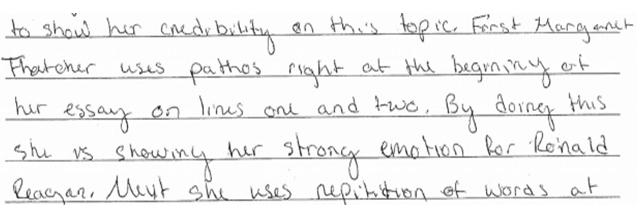 to show her credibility on this topic. First Margaret
Thatcher uses pathos right at the beginning of
her essay on lines one and two. By doing this
she is showing her strong emotion for Ronald
Reagan. Next she uses repitition of words at